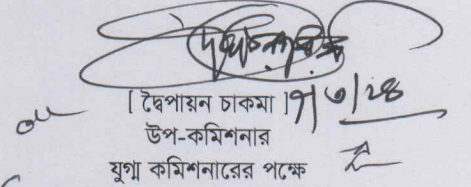 [ দ্বৈপায়ন চাকমা ]
উপ-কমিশনার
যুগ্ম কমিশনারের পক্ষে